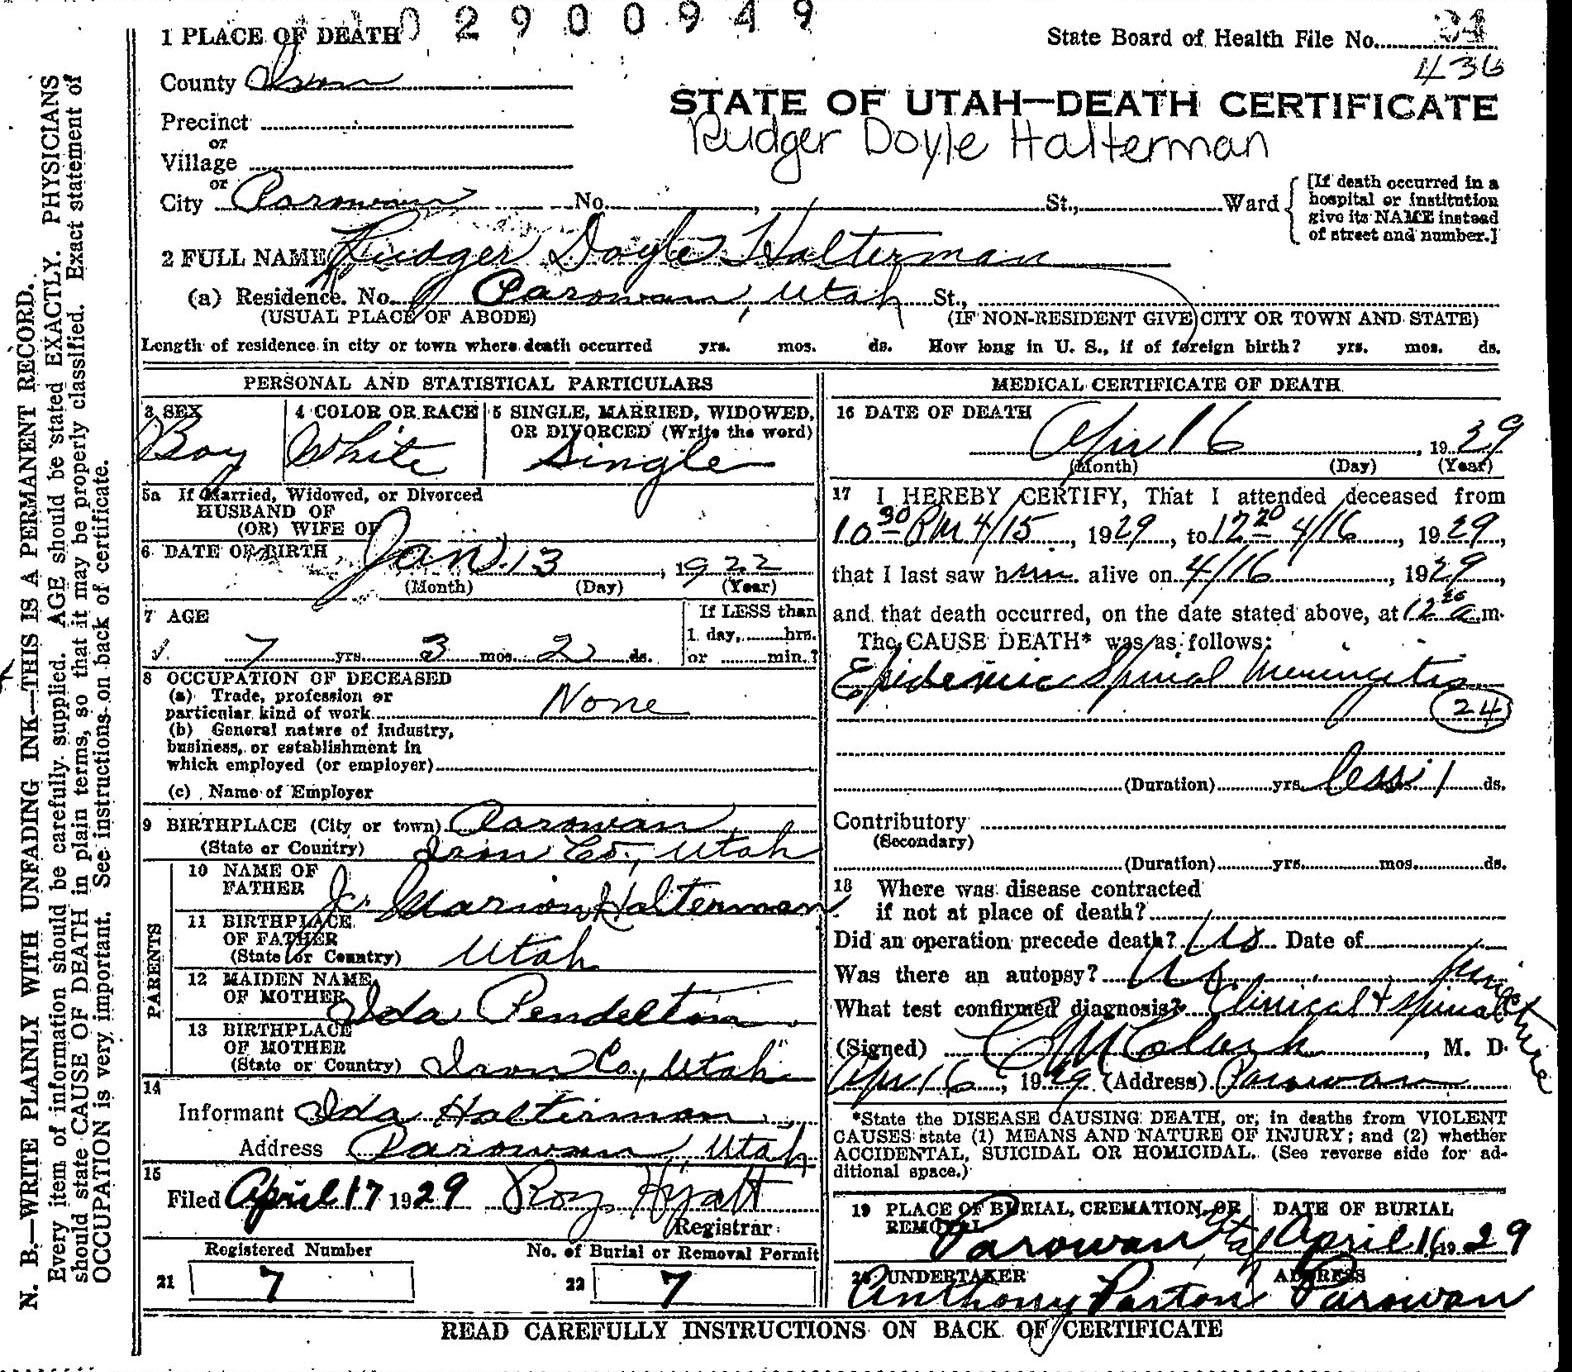 02900949
1 PLACE OF DEATH
State Board of Health File No. 24
436
County Iron
STATE OF UTAH—DEATH CERTIFICATE
Rudger Doyle Halterman
Precinct
or
Village
or
City Parowan No. , St., Ward
[If death occurred in a
hospital or institution
give its NAME instead
of street and number.]
2 FULL NAME Rudger Doyle Halterman
(a) Residence. No. Parowan, Utah St.,
(USUAL PLACE OF ABODE) (IF NON-RESIDENT GIVE CITY OR TOWN AND STATE)
Length of residence in city or town where death occurred yrs. mos. ds. How long in U. S., if of foreign birth? yrs. mos. ds.
PERSONAL AND STATISTICAL PARTICULARS
3 SEX
Boy
4 COLOR OR RACE
White
5 SINGLE, MARRIED, WIDOWED,
OR DIVORCED (Write the word)
Single
5a If Married, Widowed, or Divorced
HUSBAND OF
(OR) WIFE OF
6 DATE OF BIRTH Jan. 13, 1922
(Month) (Day) (Year)
7 AGE
7 yrs. 3 mos. 2 ds.
If LESS than
1 day, hrs.
or min.?
8 OCCUPATION OF DECEASED
(a) Trade, profession or
particular kind of work None
(b) General nature of Industry,
business, or establishment in
which employed (or employer)
(c) Name of Employer
9 BIRTHPLACE (City or town) Parowan
(State or Country) Iron Co., Utah
PARENTS
10 NAME OF
FATHER Marion Halterman
11 BIRTHPLACE
OF FATHER
(State or Country) Utah
12 MAIDEN NAME
OF MOTHER Ida Pendelton
13 BIRTHPLACE
OF MOTHER
(State or Country) Iron Co., Utah
14
Informant Ida Halterman
Address Parowan, Utah
15
Filed April 17 1929 Roy Hyatt
Registrar
Registered Number
21 7
No. of Burial or Removal Permit
22 7
MEDICAL CERTIFICATE OF DEATH
16 DATE OF DEATH
Apr 16, 1929
(Month) (Day) (Year)
17 I HEREBY CERTIFY, That I attended deceased from
10 30 PM 4/15, 1929, to 12 20 4/16, 1929,
that I last saw him alive on 4/16, 1929,
and that death occurred, on the date stated above, at 12 20 a.m.
The CAUSE DEATH* was as follows:
Epidemic Spinal Meningitis
24
(Duration) yrs. less 1 ds.
Contributory
(Secondary)
(Duration) yrs. mos. ds.
18 Where was disease contracted
if not at place of death?
Did an operation precede death? No Date of
Was there an autopsy? No
What test confirmed diagnosis? Clinical & spinal puncture
(Signed) Clark, M. D.
Apr 16, 1929 (Address) Parowan
*State the DISEASE CAUSING DEATH, or, in deaths from VIOLENT
CAUSES state (1) MEANS AND NATURE OF INJURY; and (2) whether
ACCIDENTAL, SUICIDAL OR HOMICIDAL. (See reverse side for ad-
ditional space.)
19 PLACE OF BURIAL, CREMATION, OR
REMOVAL
Parowan Utah
DATE OF BURIAL
April 16 1929
20 UNDERTAKER
Anthony Paxton
ADDRESS
Parowan
READ CAREFULLY INSTRUCTIONS ON BACK OF CERTIFICATE
N. B.—WRITE PLAINLY WITH UNFADING INK—THIS IS A PERMANENT RECORD.
Every item of information should be carefully supplied. AGE should be stated EXACTLY. PHYSICIANS
should state CAUSE OF DEATH in plain terms, so that it may be properly classified. Exact statement of
OCCUPATION is very important. See instructions on back of certificate.